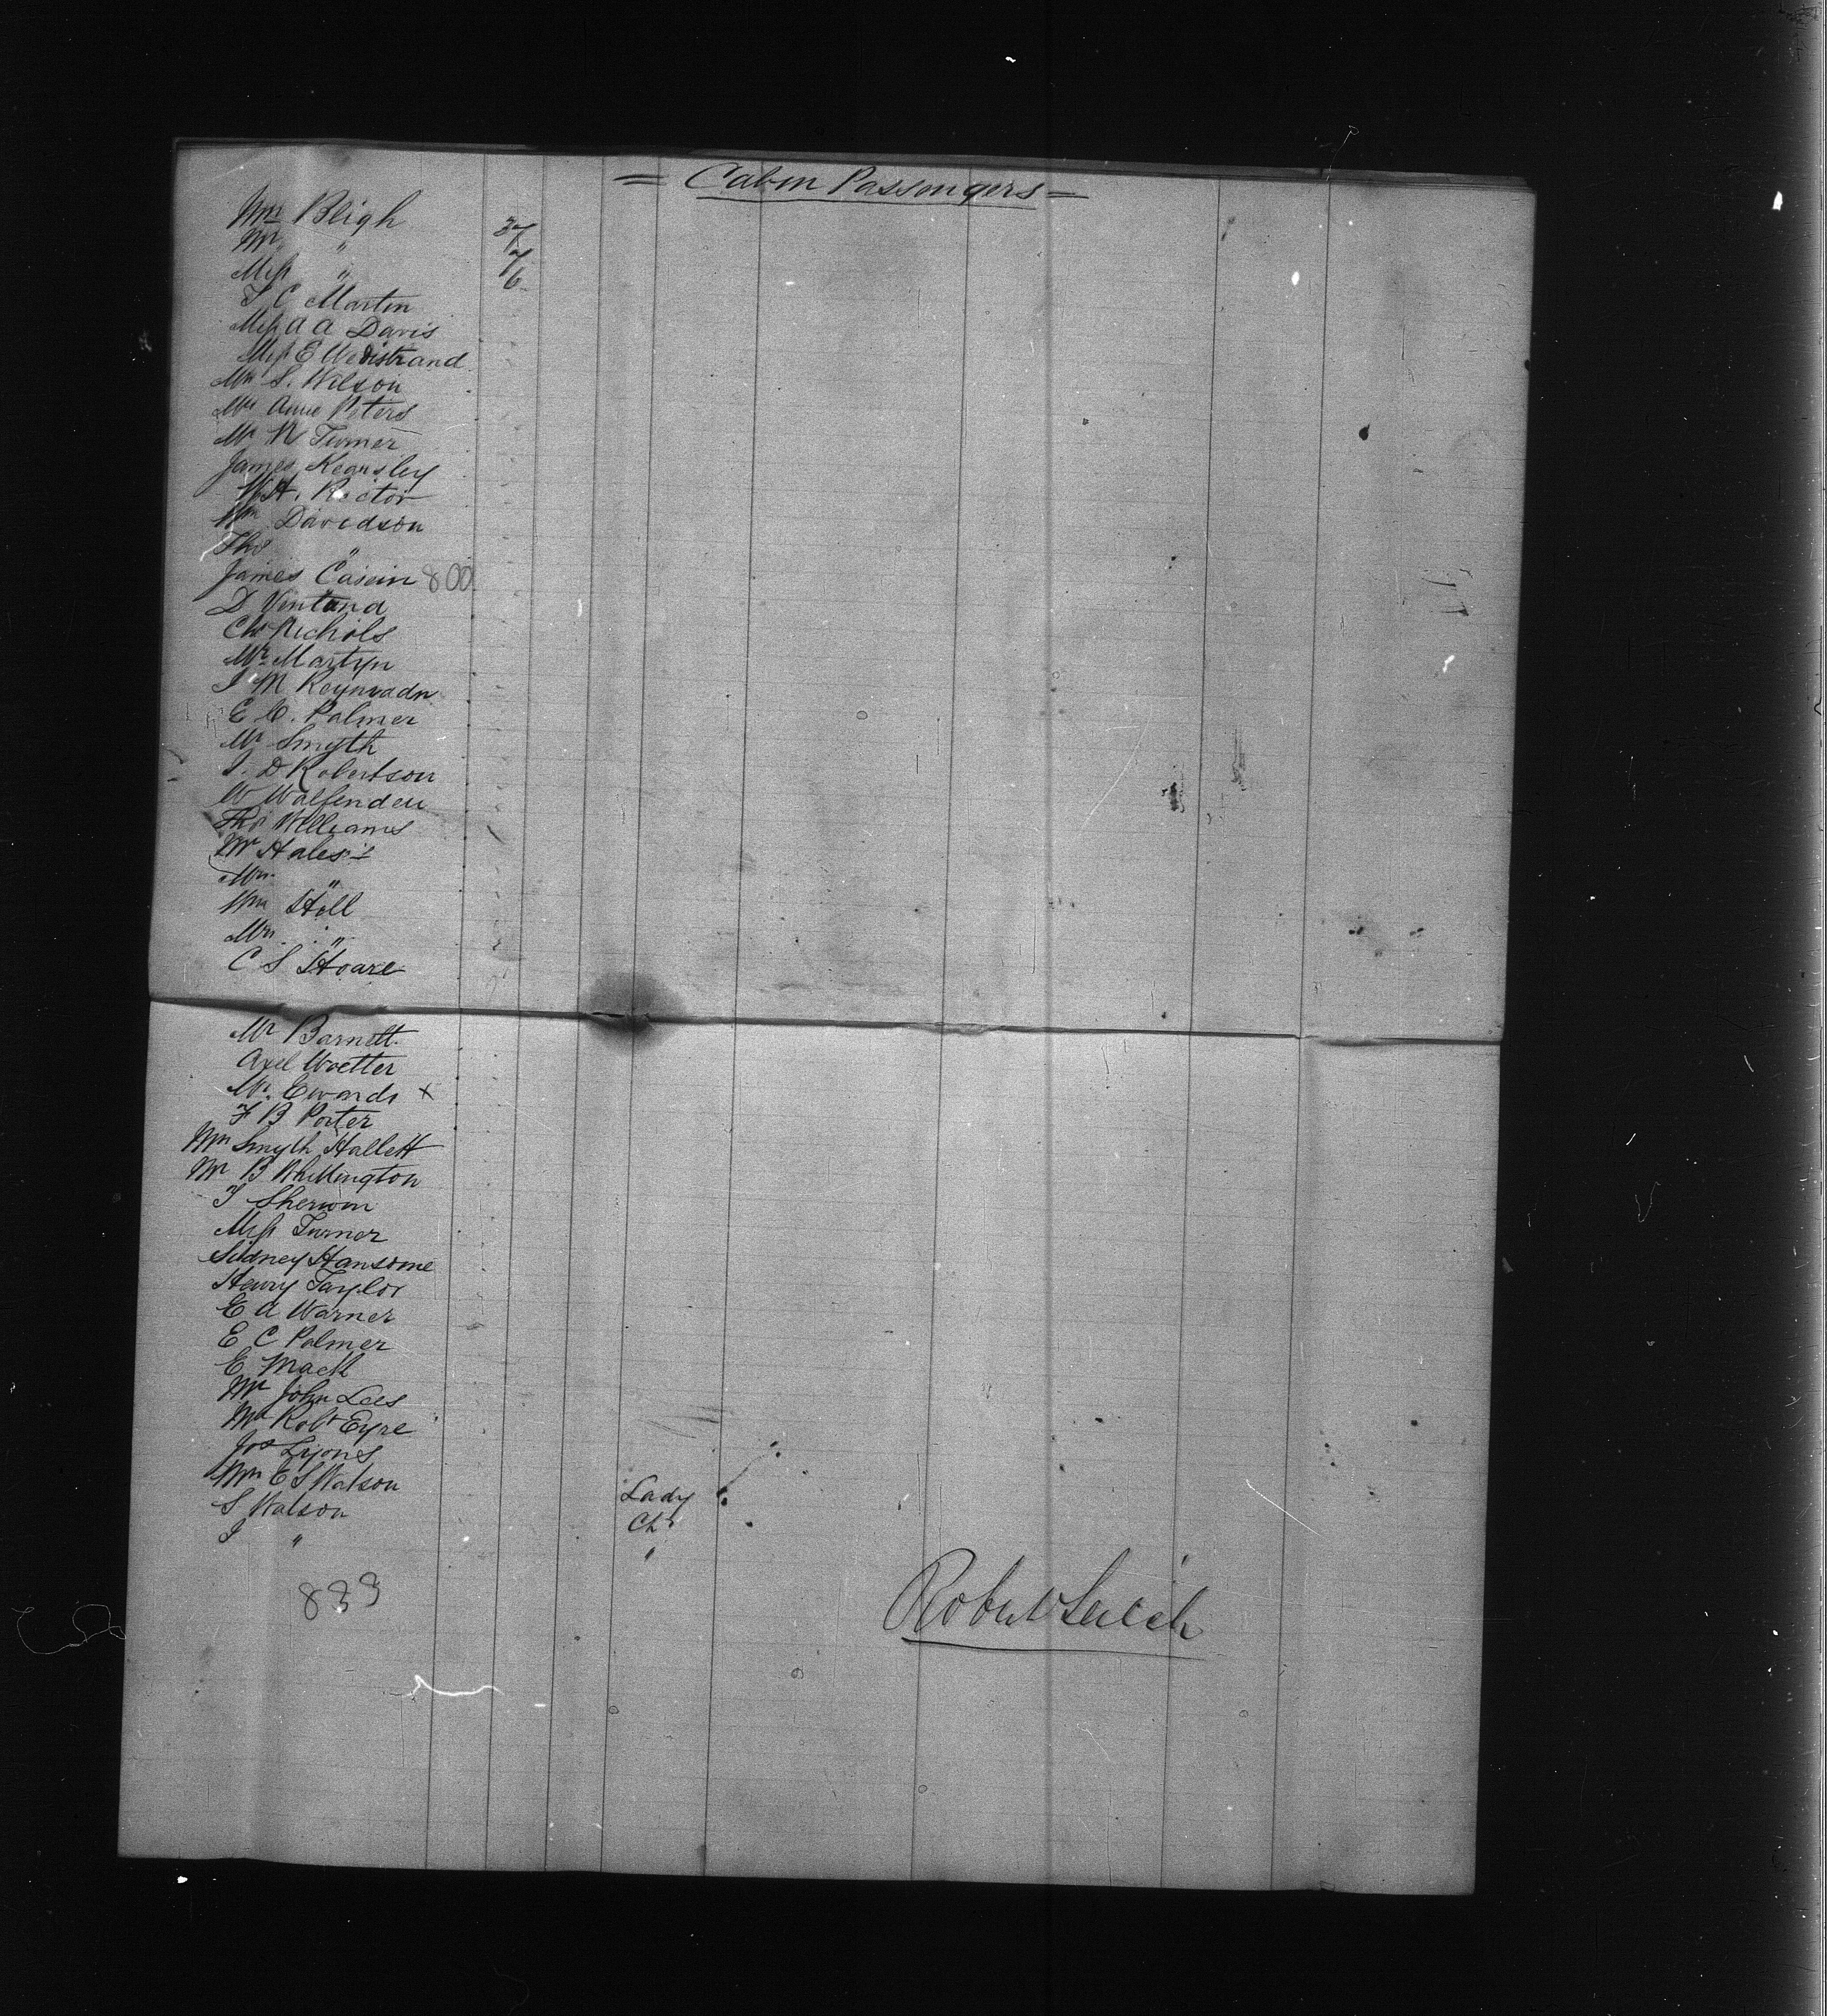 = Cabin Passengers =
Mrs Bligh 37
Mr " 7
Miss " 6
T C Martin
Miss A A Davis
Miss E Wedistrand
Mr S. Wilson
Mrs Anne Peters
Mr N Turner
James Kearsley
W.H. Rector
Wm Davidson
Thos "
James Cassin 800
D Ventana
Chs Nichols
Mr Martyn
J M
E C. Palmer
Mr Smyth
J. D Robertson
W Walfenden
Thos Williams
Mr Hales
Mrs "
Wm Holl
Mrs "
C S Hoare
Mr Barnett
Axel Woetter
Mr Ewards x
F B Porter
Mrs Smyth Hallett
Mr B Whittington
T Sherwin
Miss Turner
Sidney Hansome
Henry Taylor
E A Warner
E C Palmer
E Mack
Mr John Lees
Mr Robt Eyre
Jos Lyons
Mrs E S Watson Lady
S Watson Chd
J " "
833
Robert Leitch